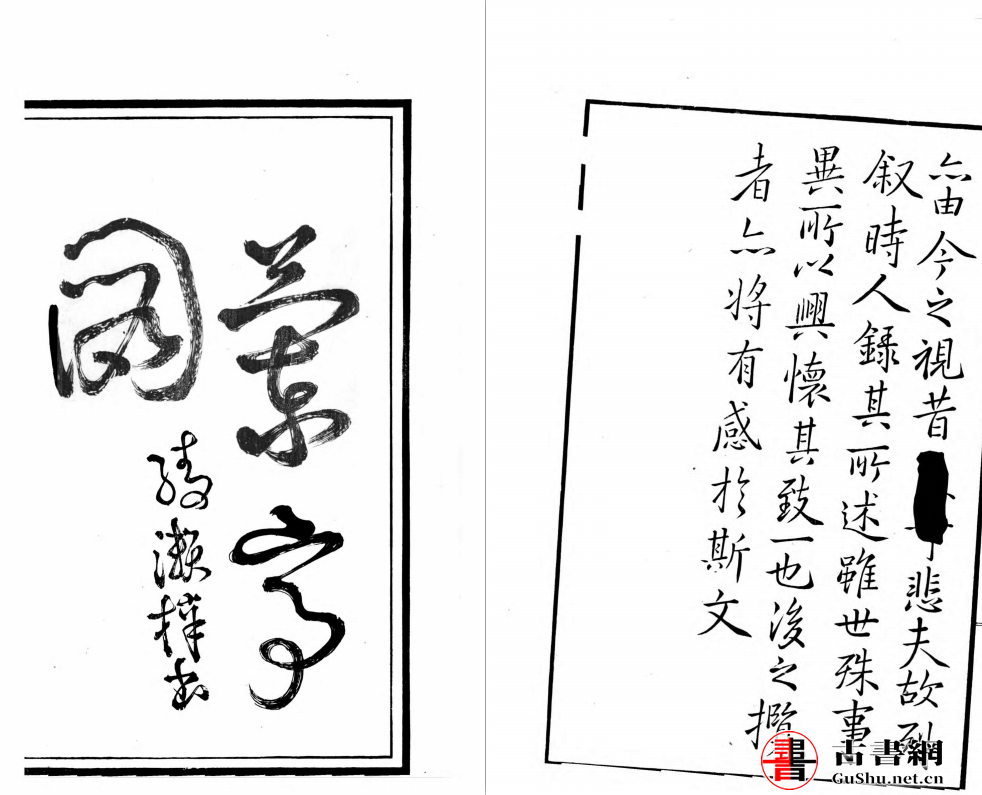 亦由今之視昔悲夫故列
叙時人錄其所述雖世殊事
異所以興懷其致一也後之攬
者亦將有感於斯文
蘭亭
圖
綾瀨梓書
書
古書網
GuShu.net.cn